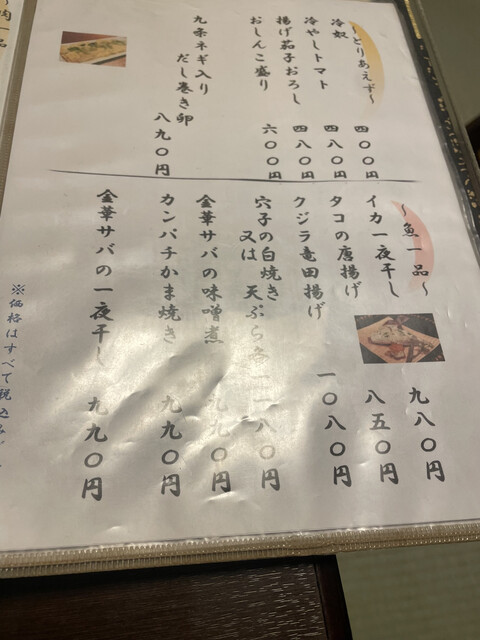 〜とりあえず〜
冷奴 四〇〇円
冷やしトマト 四八〇円
揚げ茄子おろし 四八〇円
おしんこ盛り 六〇〇円
九条ネギ入り
だし巻き卵 八九〇円
〜魚一品〜
イカ一夜干し 九八〇円
タコの唐揚げ 八五〇円
クジラ竜田揚げ 一〇八〇円
穴子の白焼き
又は 天ぷら 各一一八〇円
金華サバの味噌煮 九九〇円
カンパチかま焼き 九九〇円
金華サバの一夜干し 九九〇円
※価格はすべて税込
肉一品〜